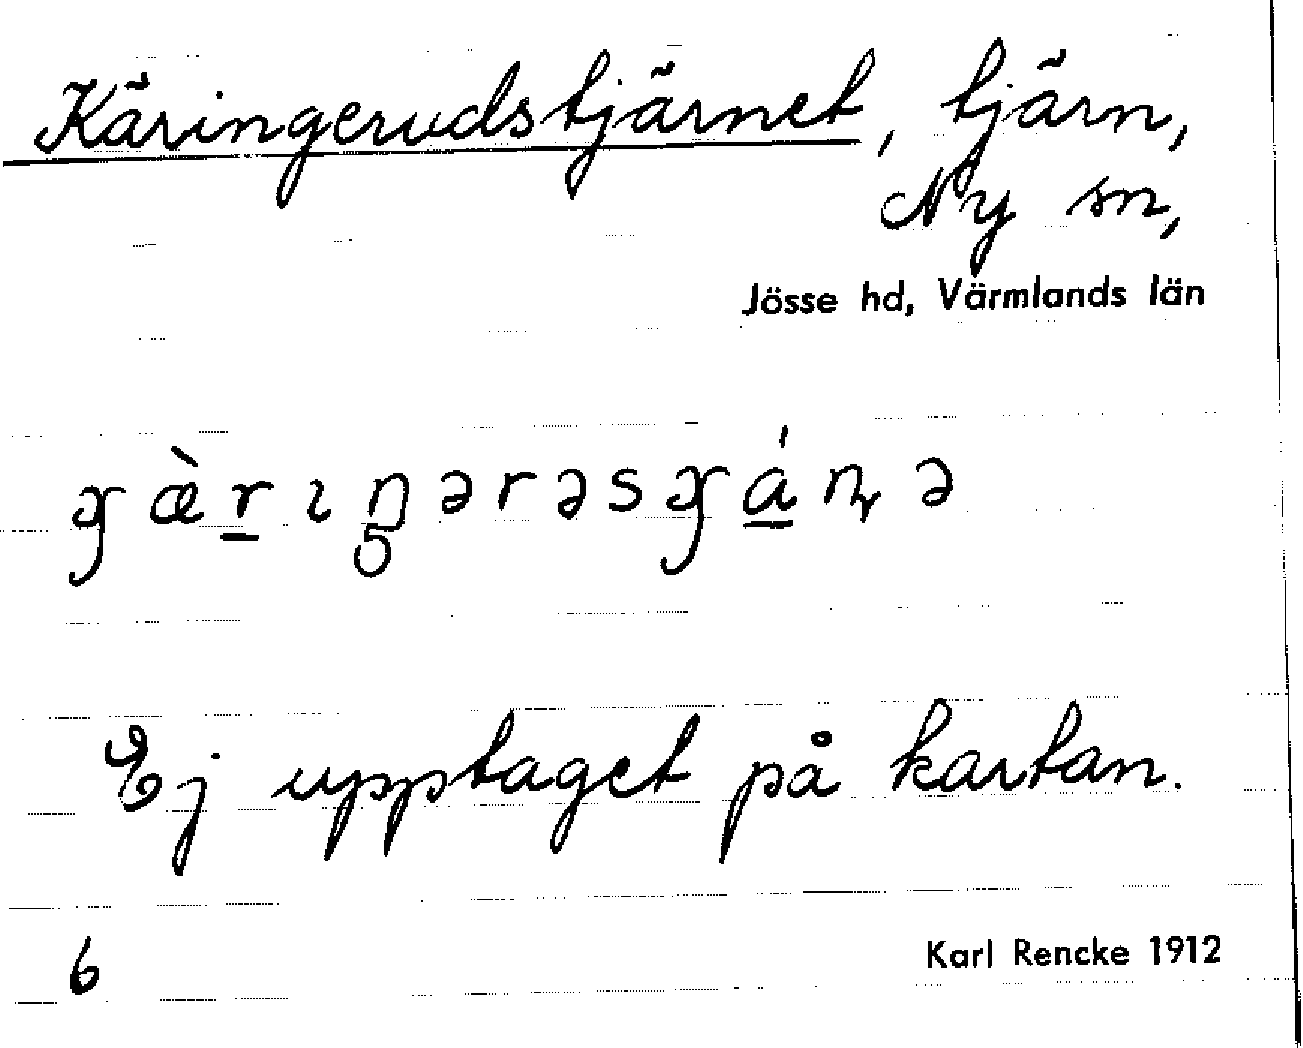 Käringerudstjärnet, tjärn,
Ny sn,
Jösse hd, Värmlands län
Ej upptaget på kartan.
6
Karl Rencke 1912